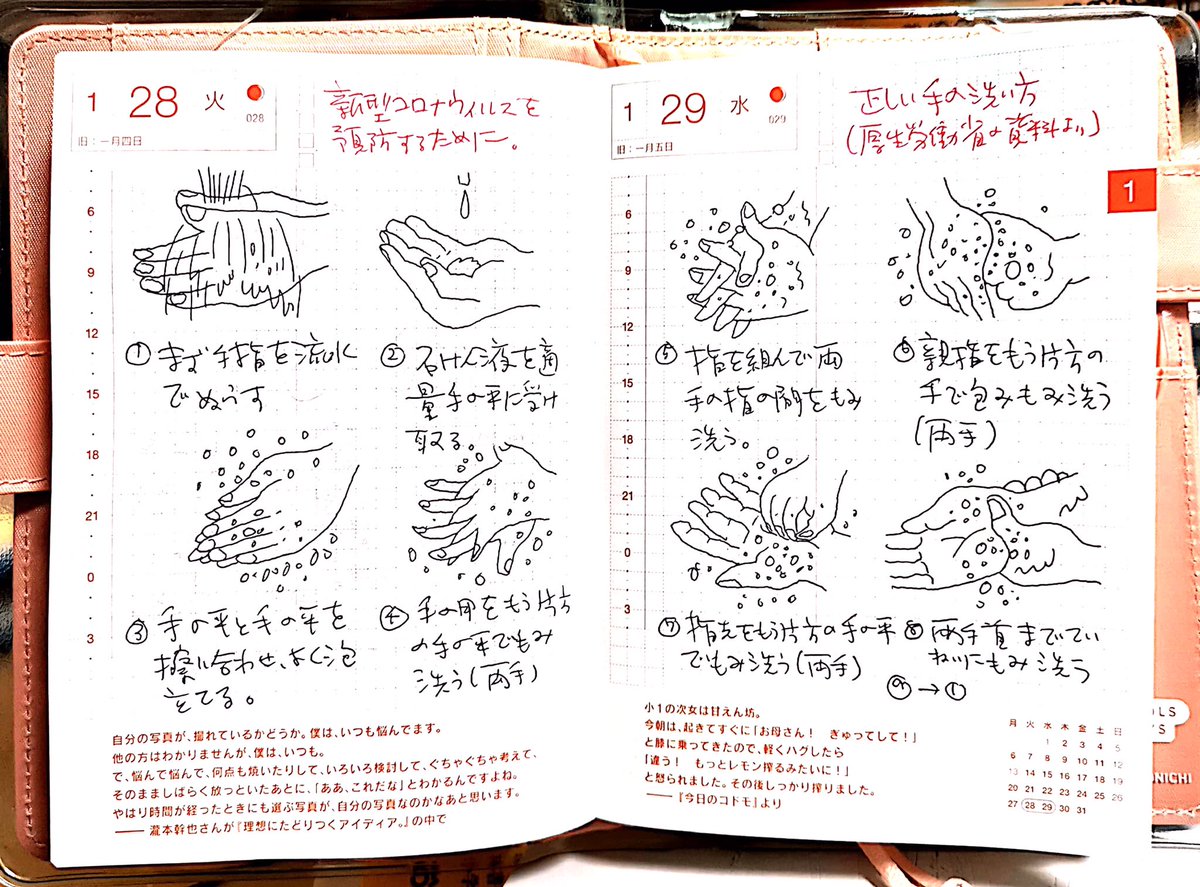 1 28 火
028
旧：一月四日
新型コロナウィルスを
予防するために。
6
9
12
15
18
21
0
3
① まず手指を流水
でぬらす
② 石けん液を適
量手の平に受け
取る。
③ 手の平と手の平を
擦り合わせ、よく泡
立てる。
④ 手の甲をもう片方
の手の平でもみ
洗う(両手)
自分の写真が、撮れているかどうか。僕は、いつも悩んでます。
他の方はわかりませんが、僕は、いつも。
で、悩んで悩んで、何点も焼いたりして、いろいろ検討して、ぐちゃぐちゃ考えて、
そのまましばらく放っといたあとに、「ああ、これだな」とわかるんですよね。
やはり時間が経ったときにも選ぶ写真が、自分の写真なのかなあと思います。
── 瀧本幹也さんが『理想にたどりつくアイディア。』の中で
1 29 水
029
旧：一月五日
正しい手の洗い方
(厚生労働省の資料より)
1
6
9
12
15
18
21
0
3
⑤ 指を組んで両
手の指の間をもみ
洗う。
⑥ 親指をもう片方の
手で包みもみ洗う
(両手)
⑦ 指先をもう片方の手の平
でもみ洗う(両手)
⑧ 両手首までてい
ねいにもみ洗う
⑨→①
小1の次女は甘えん坊。
今朝は、起きてすぐに「お母さん！　ぎゅってして！」
と膝に乗ってきたので、軽くハグしたら
「違う！　もっとレモン搾るみたいに！」
と怒られました。その後しっかり搾りました。
──『今日のコドモ』より
月 火 水 木 金 土 日
1 2 3 4 5
6 7 8 9 10 11 12
13 14 15 16 17 18 19
20 21 22 23 24 25 26
27 28 29 30 31